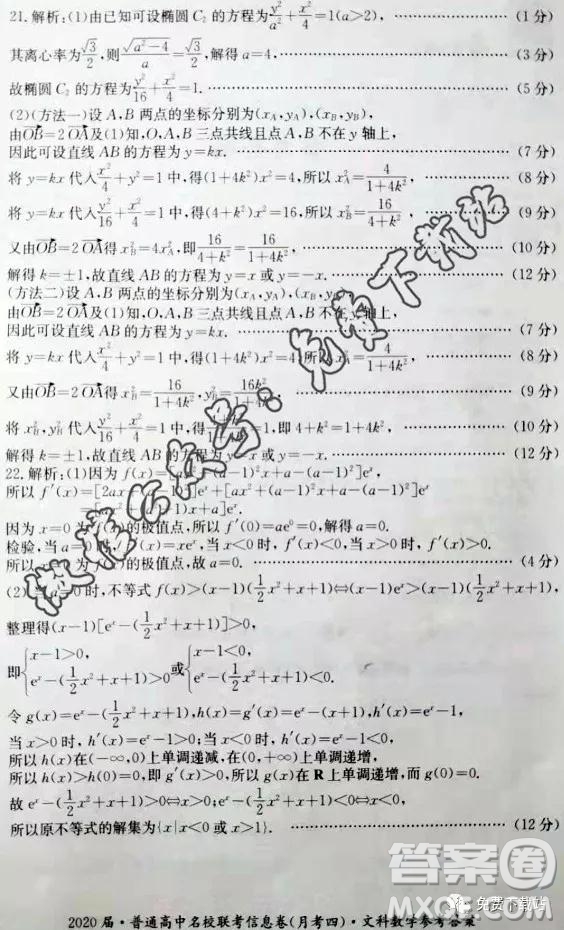 21.解析:(1)由已知可设椭圆C₂的方程为y²/a²+x²/4=1(a>2),……(1分)
其离心率为√3/2,则√(a²-4)/a=√3/2,解得a=4,……(3分)
故椭圆C₂的方程为y²/16+x²/4=1.……(5分)
(2)(方法一)设A,B两点的坐标分别为(x_A,y_A),(x_B,y_B),
由OB=2OA及(1)知,O,A,B三点共线且点A,B不在y轴上,
因此可设直线AB的方程为y=kx.……(7分)
将y=kx代入x²/4+y²=1中,得(1+4k²)x²=4,所以x_A²=4/(1+4k²),……(8分)
将y=kx代入y²/16+x²/4=1中,得(4+k²)x²=16,所以x_B²=16/(4+k²),……(9分)
又由OB=2OA得x_B²=4x_A²,即16/(4+k²)=16/(1+4k²),……(10分)
解得k=±1,故直线AB的方程为y=x或y=-x.……(12分)
(方法二)设A,B两点的坐标分别为(x_A,y_A),(x_B,y_B),
由OB=2OA及(1)知,O,A,B三点共线且点A,B不在y轴上,
因此可设直线AB的方程为y=kx.……(7分)
将y=kx代入x²/4+y²=1中,得(1+4k²)x²=4,所以x_A²=4/(1+4k²),……(8分)
又由OB=2OA得x_B²=16/(1+4k²),y_B²=16k²/(1+4k²),……(9分)
将x_B²,y_B²代入y²/16+x²/4=1中,得 =1,即4+k²=1+4k²,……(10分)
解得k=±1,故直线AB的方程为y=x或y=-x.……(12分)
22.解析:(1)因为f(x)=[ax²+(a-1)²x+a-(a-1)²]eˣ,
所以f′(x)=[2ax+(a-1)²]eˣ+[ax²+(a-1)²x+a-(a-1)²]eˣ
1)x+a]eˣ.
因为x=0为f(x)的极值点,所以f′(0)=ae⁰=0,解得a=0.
检验,当a=0时,f′(x)=xeˣ,当x<0时,f′(x)<0,当x>0时,f′(x)>0.
所以x=0为f(x)的极值点,故a=0.……(4分)
(2)当a=0时,不等式f(x)>(x-1)(1/2x²+x+1)⇔(x-1)eˣ>(x-1)(1/2x²+x+1),
整理得(x-1)[eˣ-(1/2x²+x+1)]>0,
即{x-1>0, eˣ-(1/2x²+x+1)>0或{x-1<0, eˣ-(1/2x²+x+1)<0.
令g(x)=eˣ-(1/2x²+x+1),h(x)=g′(x)=eˣ-(x+1),h′(x)=eˣ-1,
当x>0时,h′(x)=eˣ-1>0;当x<0时,h′(x)=eˣ-1<0,
所以h(x)在(-∞,0)上单调递减,在(0,+∞)上单调递增,
所以h(x)>h(0)=0,即g′(x)>0,所以g(x)在R上单调递增,而g(0)=0.
故eˣ-(1/2x²+x+1)>0⇔x>0;eˣ-(1/2x²+x+1)<0⇔x<0,
所以原不等式的解集为{x|x<0或x>1}.……(12分)
2020届·普通高中名校联考信息卷(月考四)·文科数学参考答案
答案圈
MXQE.COM
免费下载站